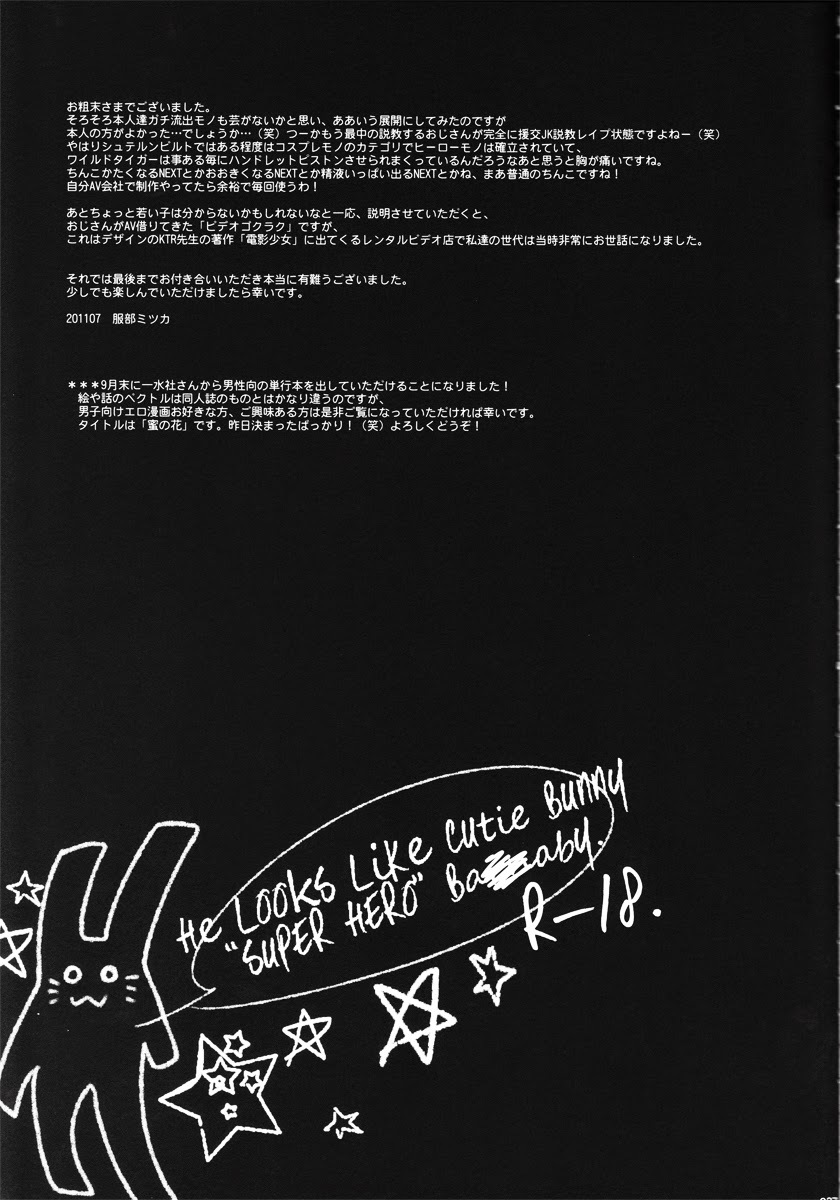 お粗末さまでございました。
そろそろ本人達ガチ流出モノも芸がないかと思い、ああいう展開にしてみたのですが
本人の方がよかった…でしょうか…（笑）つーかもう最中の説教するおじさんが完全に援交JK説教レイプ状態ですよねー（笑）
やはりシュテルンビルトではある程度はコスプレモノのカテゴリでヒーローモノは確立されていて、
ワイルドタイガーは事ある毎にハンドレットピストンさせられまくっているんだろうなあと思うと胸が痛いですね。
ちんこかたくなるNEXTとかおおきくなるNEXTとか精液いっぱい出るNEXTとかね、まあ普通のちんこですね！
自分AV会社で制作やってたら余裕で毎回使うわ！
あとちょっと若い子は分からないかもしれないなと一応、説明させていただくと、
おじさんがAV借りてきた「ビデオゴクラク」ですが、
これはデザインのKTR先生の著作「電影少女」に出てくるレンタルビデオ店で私達の世代は当時非常にお世話になりました。
それでは最後までお付き合いいただき本当に有難うございました。
少しでも楽しんでいただけましたら幸いです。
201107　服部ミツカ
＊＊＊9月末に一水社さんから男性向の単行本を出していただけることになりました！
絵や話のベクトルは同人誌のものとはかなり違うのですが、
男子向けエロ漫画お好きな方、ご興味ある方は是非ご覧になっていただければ幸いです。
タイトルは「蜜の花」です。昨日決まったばっかり！（笑）よろしくどうぞ！
He Looks Like Cutie Bunny
"SUPER HERO" Ba aby.
R-18.